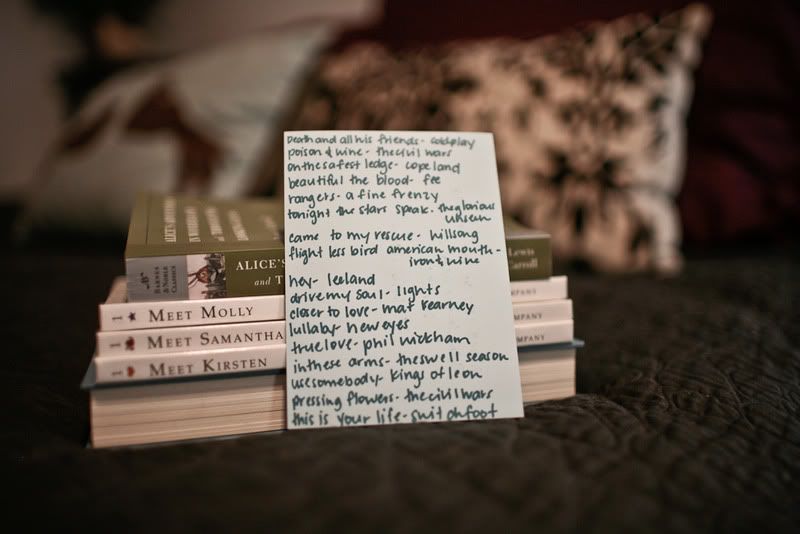 Death and all his friends - coldplay
poison & wine - the civil wars
on the safest ledge - copeland
beautiful the blood - fee
rangers - a fine frenzy
tonight the stars speak - the glorious
unseen
came to my rescue - hillsong
flight less bird american mouth -
iron & wine
hey - leeland
drive my soul - lights
closer to love - mat kearney
lullaby - new eyes
true love - phil wickham
in these arms - the swell season
use somebody - kings of leon
pressing flowers - the civil wars
this is your life - switchfoot
BARNES
& NOBLE
CLASSICS
ALICE'S
and T
Lewis
Carroll
1 MEET MOLLY
MPANY
1 MEET SAMANTHA
OMPANY
1 MEET KIRSTEN
MPANY